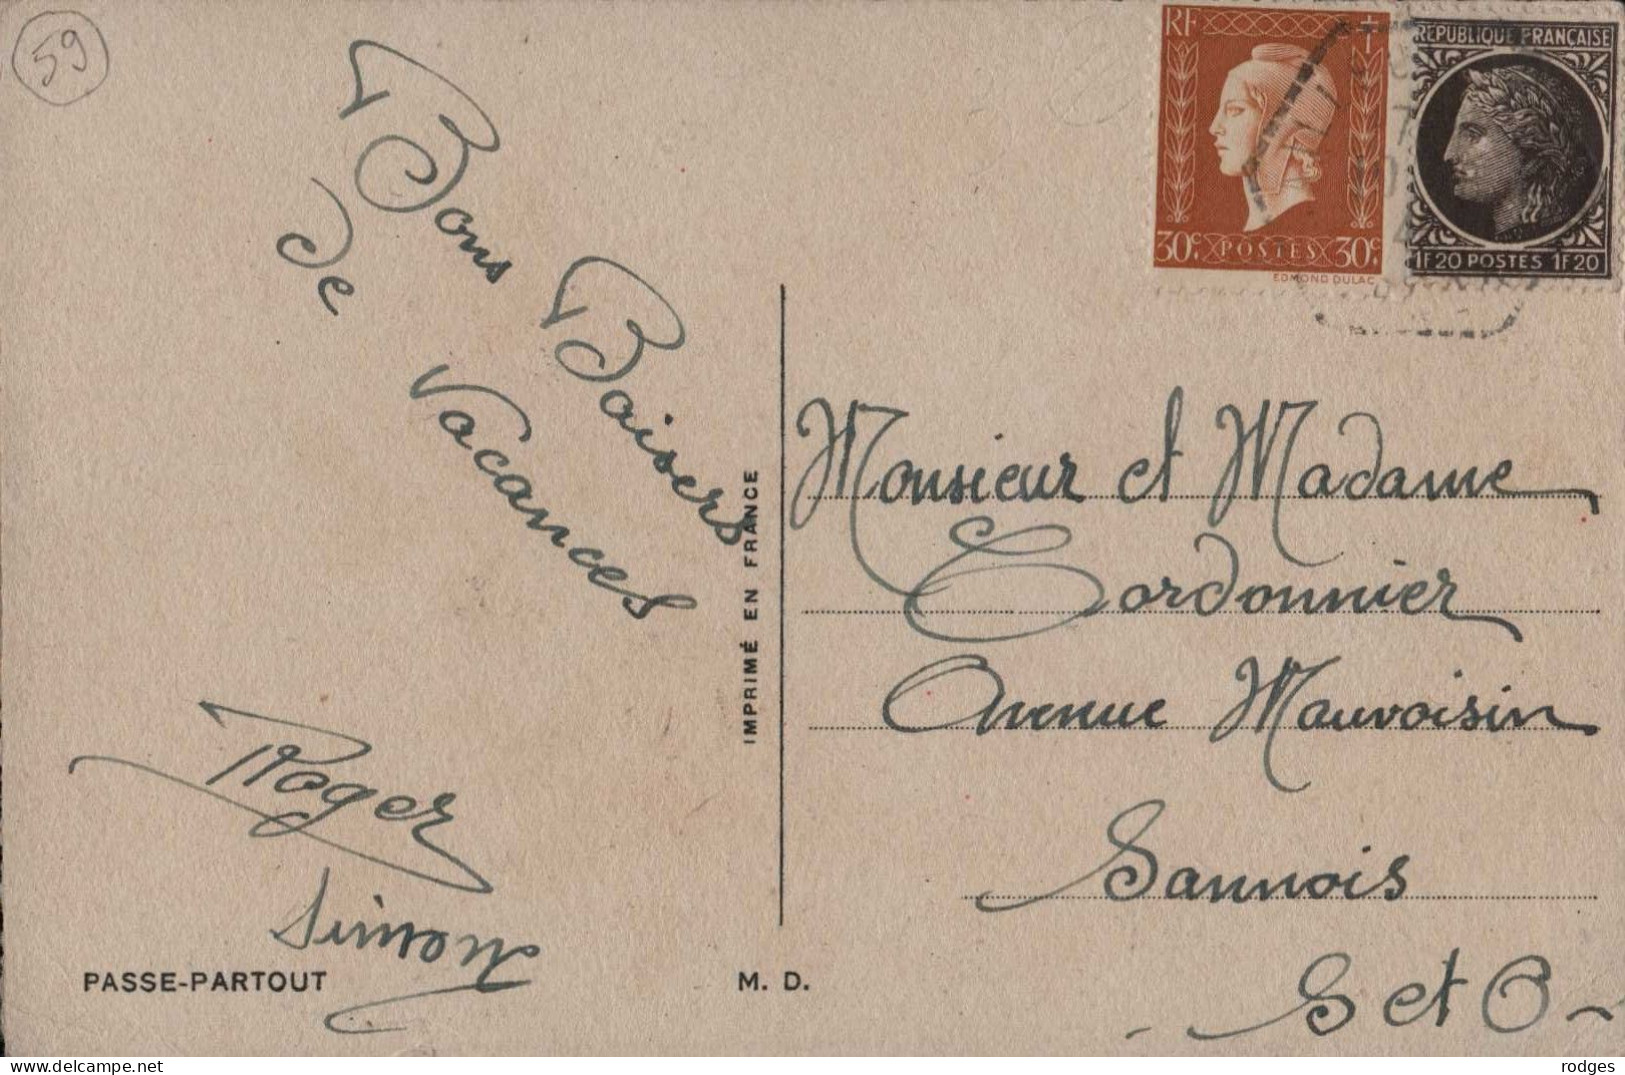 59
Bons Baisers
de Vacances
Roger
Simone
PASSE-PARTOUT
M. D.
IMPRIMÉ EN FRANCE
RF
30c POSTES 30c
EDMOND DULAC
RÉPUBLIQUE FRANÇAISE
1F20 POSTES 1F20
Monsieur et Madame
Cordonnier
Avenue Mauvoisin
Sannois
S et O
delcampe.net
rodges